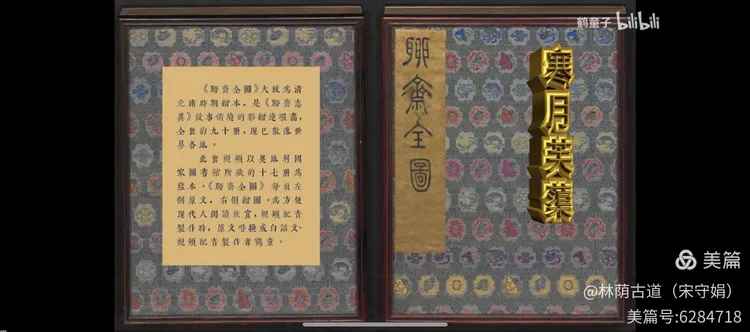 《聊齋全圖》大致為清
光緒時期繪本，是《聊齋志
異》故事情境的彩繪連環畫，
全套約九十册，現已散落世
界各地。
此套視頻以奧地利國
家圖書館所藏的十七册為
藍本。《聊齋全圖》每頁左
側原文，右側繪圖。為方便
現代人閱讀欣賞，視頻配音
製作時，原文替換成白話文。
視頻配音製作者鶴童。
聊齋全圖
寒月芙蕖
鹤童子 bilibili
美篇
@林荫古道（宋守娟）
美篇号:6284718